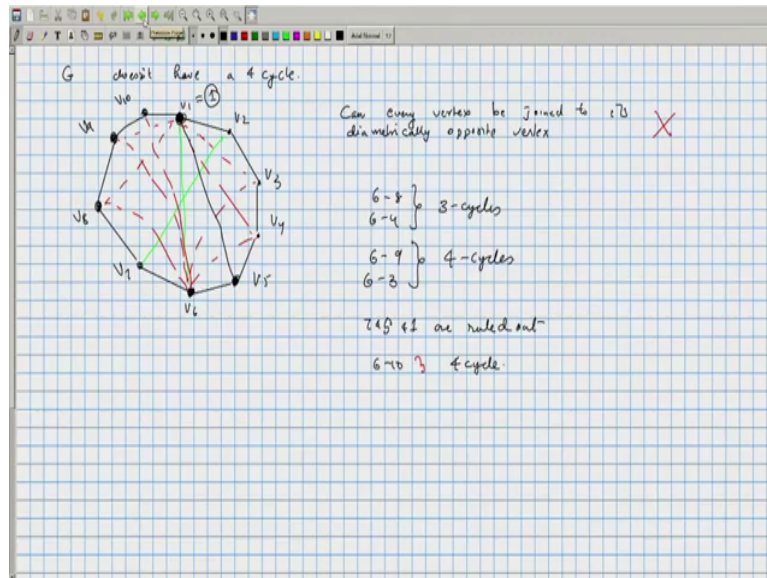 G doesn't have a 4 cycle.
V10
V1 = ①
V2
V9
V3
V8
V4
V7
V5
V6
Can every vertex be joined to its
diametrically opposite vertex
6-8
6-4
3-cycles
6-9
6-3
4-cycles
7,5 &1 are ruled out
6-10 } 4 cycle.